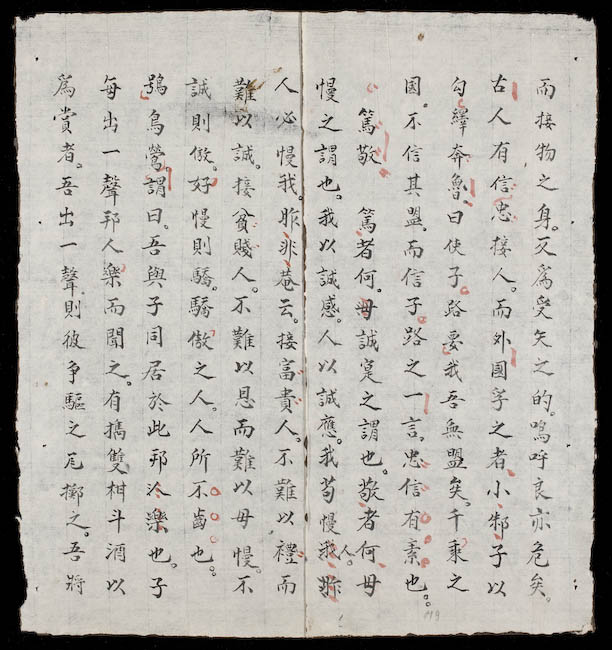 而接物之身。又爲受矢之的。嗚呼良亦危矣。
古人有信忠接人。而外國孚之者。小邾子以
勾繹奔魯。曰使子路要我吾無盟矣。千乘之
國。不信其盟。而信子路之一言。忠信有素也。
篤敬 篤者何。毋誠寔之謂也。敬者何毋
慢之謂也。我以誠感。人以誠應。我苟慢人。
人必慢我。昨非菴云。接富貴人。不難以禮而
難以誠。接貧賤人。不難以恩而難以毋慢。不
誠則傲。好慢則驕。驕傲之人。人所不齒也。
鴞鳥鶯謂曰。吾與子同居於此邦。仌樂也。子
每出一聲邦人樂而聞之。有攜雙柑斗酒以
爲賞者。吾出一聲則彼爭驅之瓦擲之。吾將